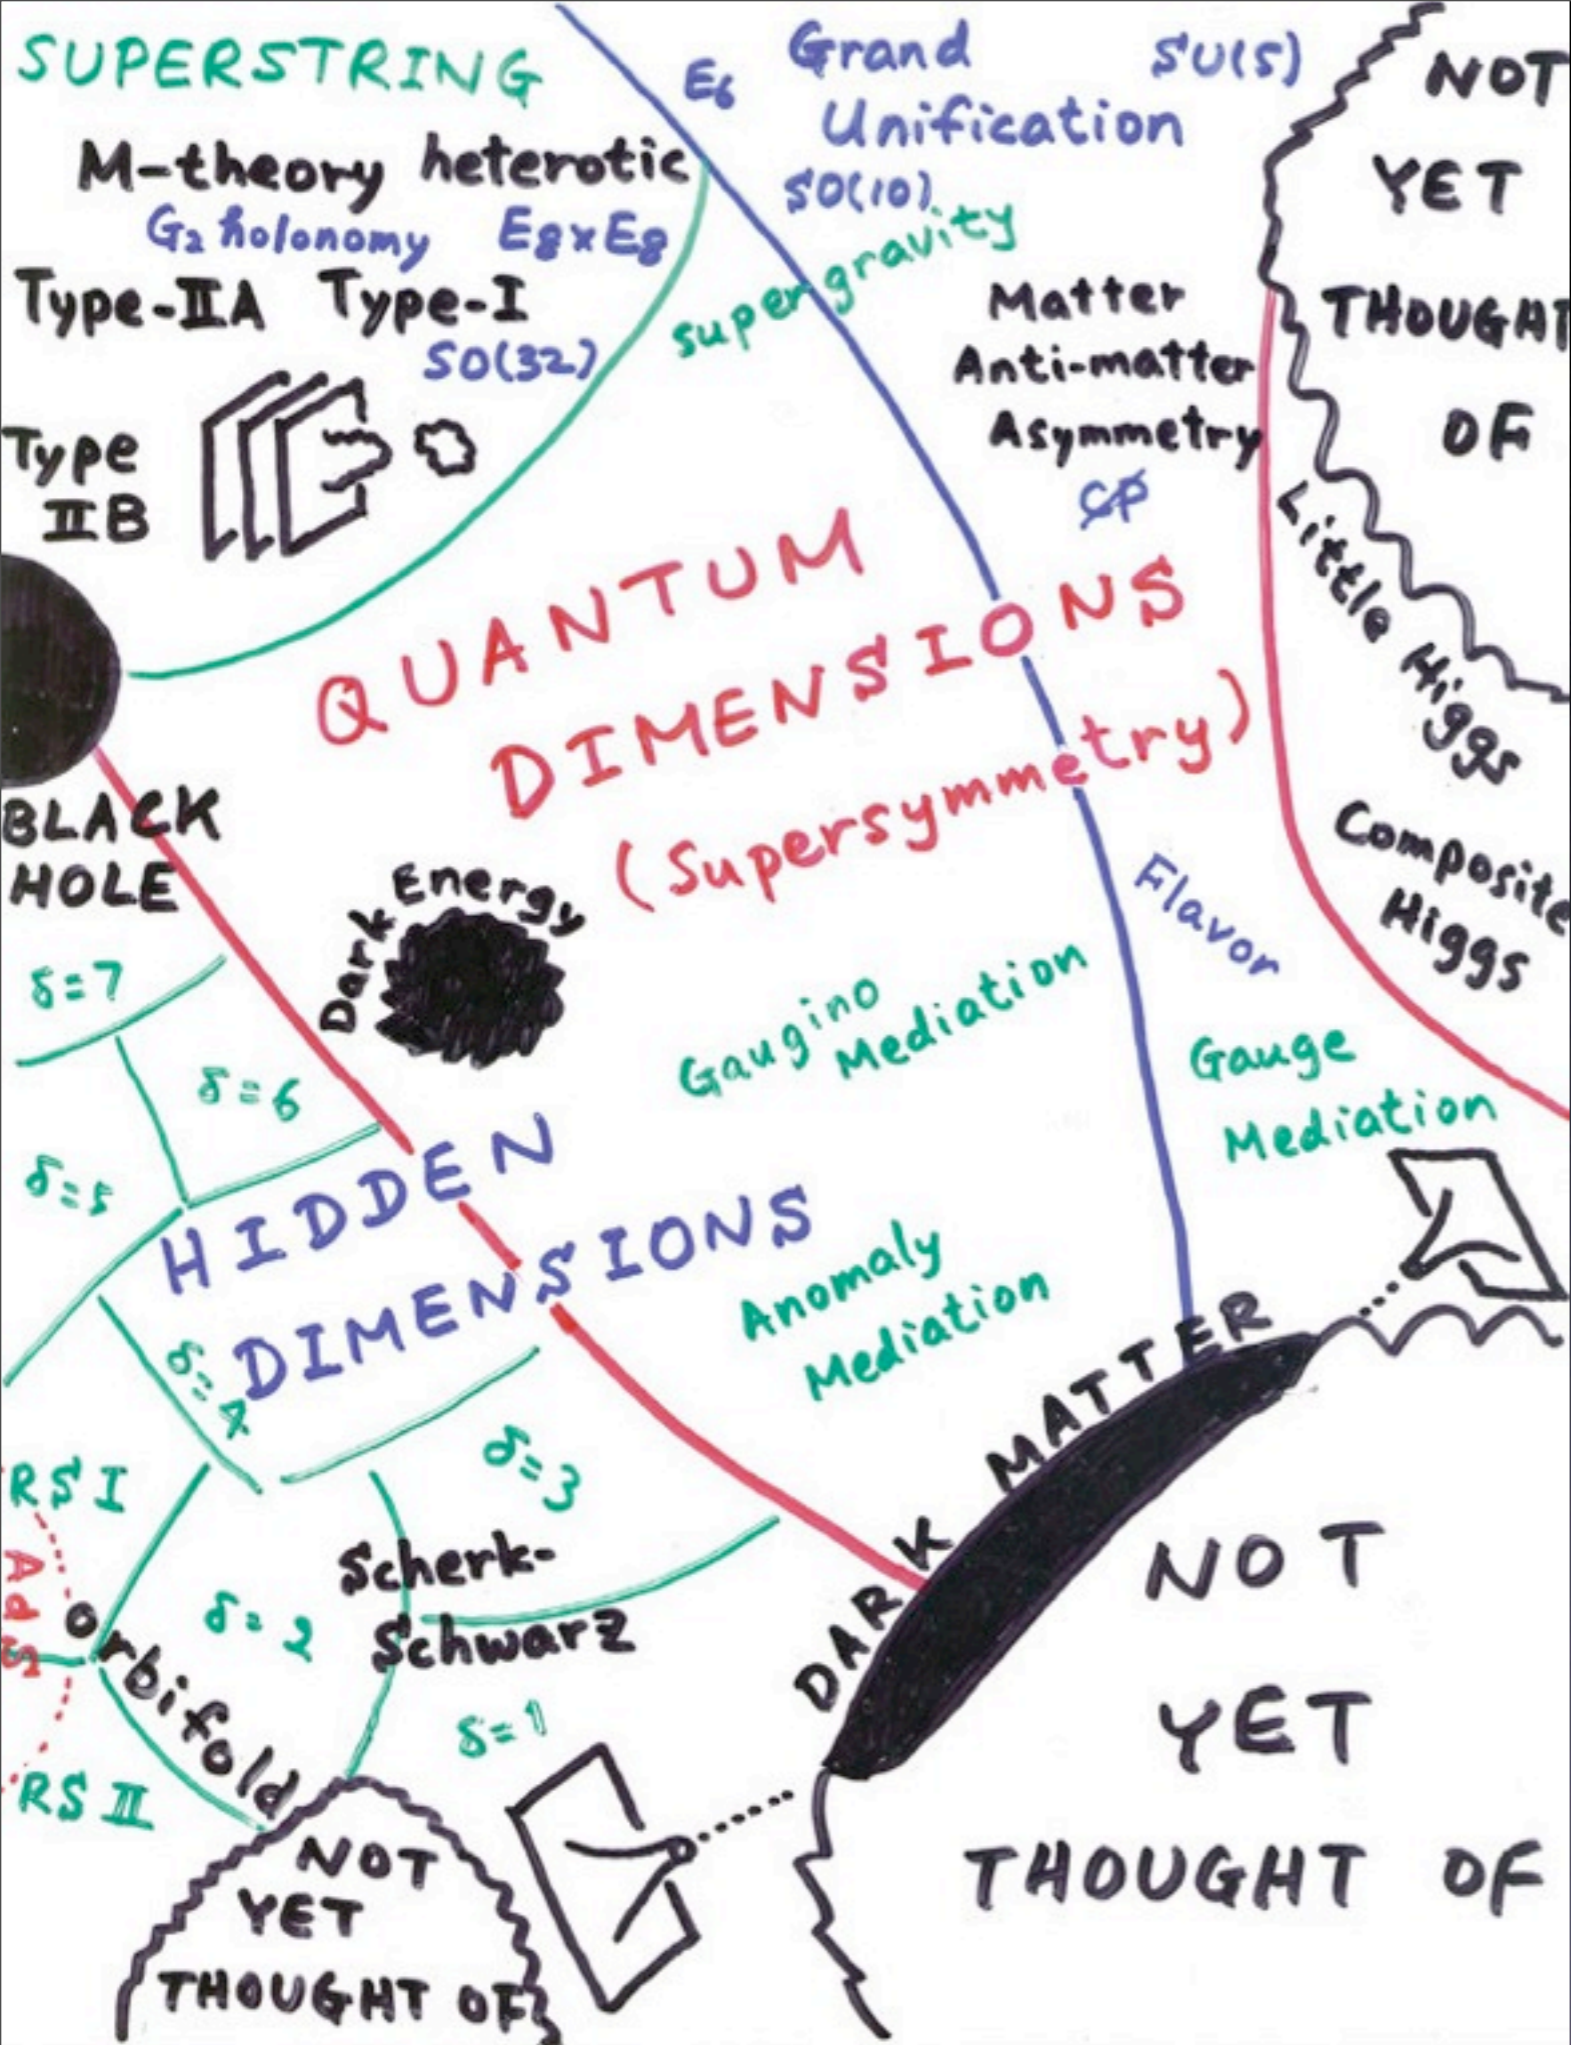 SUPERSTRING
M-theory heterotic
G2 holonomy E8xE8
Type-IIA Type-I
SO(32)
Type
IIB
E6
Grand
Unification
SU(5)
SO(10)
supergravity
Matter
Anti-matter
Asymmetry
CP
NOT
YET
THOUGHT
OF
Little Higgs
Composite
Higgs
QUANTUM
DIMENSIONS
(Supersymmetry)
BLACK
HOLE
Dark Energy
Flavor
Gaugino
Mediation
Gauge
Mediation
Anomaly
Mediation
δ=7
δ=6
δ=5
HIDDEN
DIMENSIONS
δ=4
δ=3
Scherk-
Schwarz
δ=2
δ=1
RS I
AdS
Orbifold
RS II
DARK MATTER
NOT
YET
THOUGHT OF
NOT
YET
THOUGHT OF